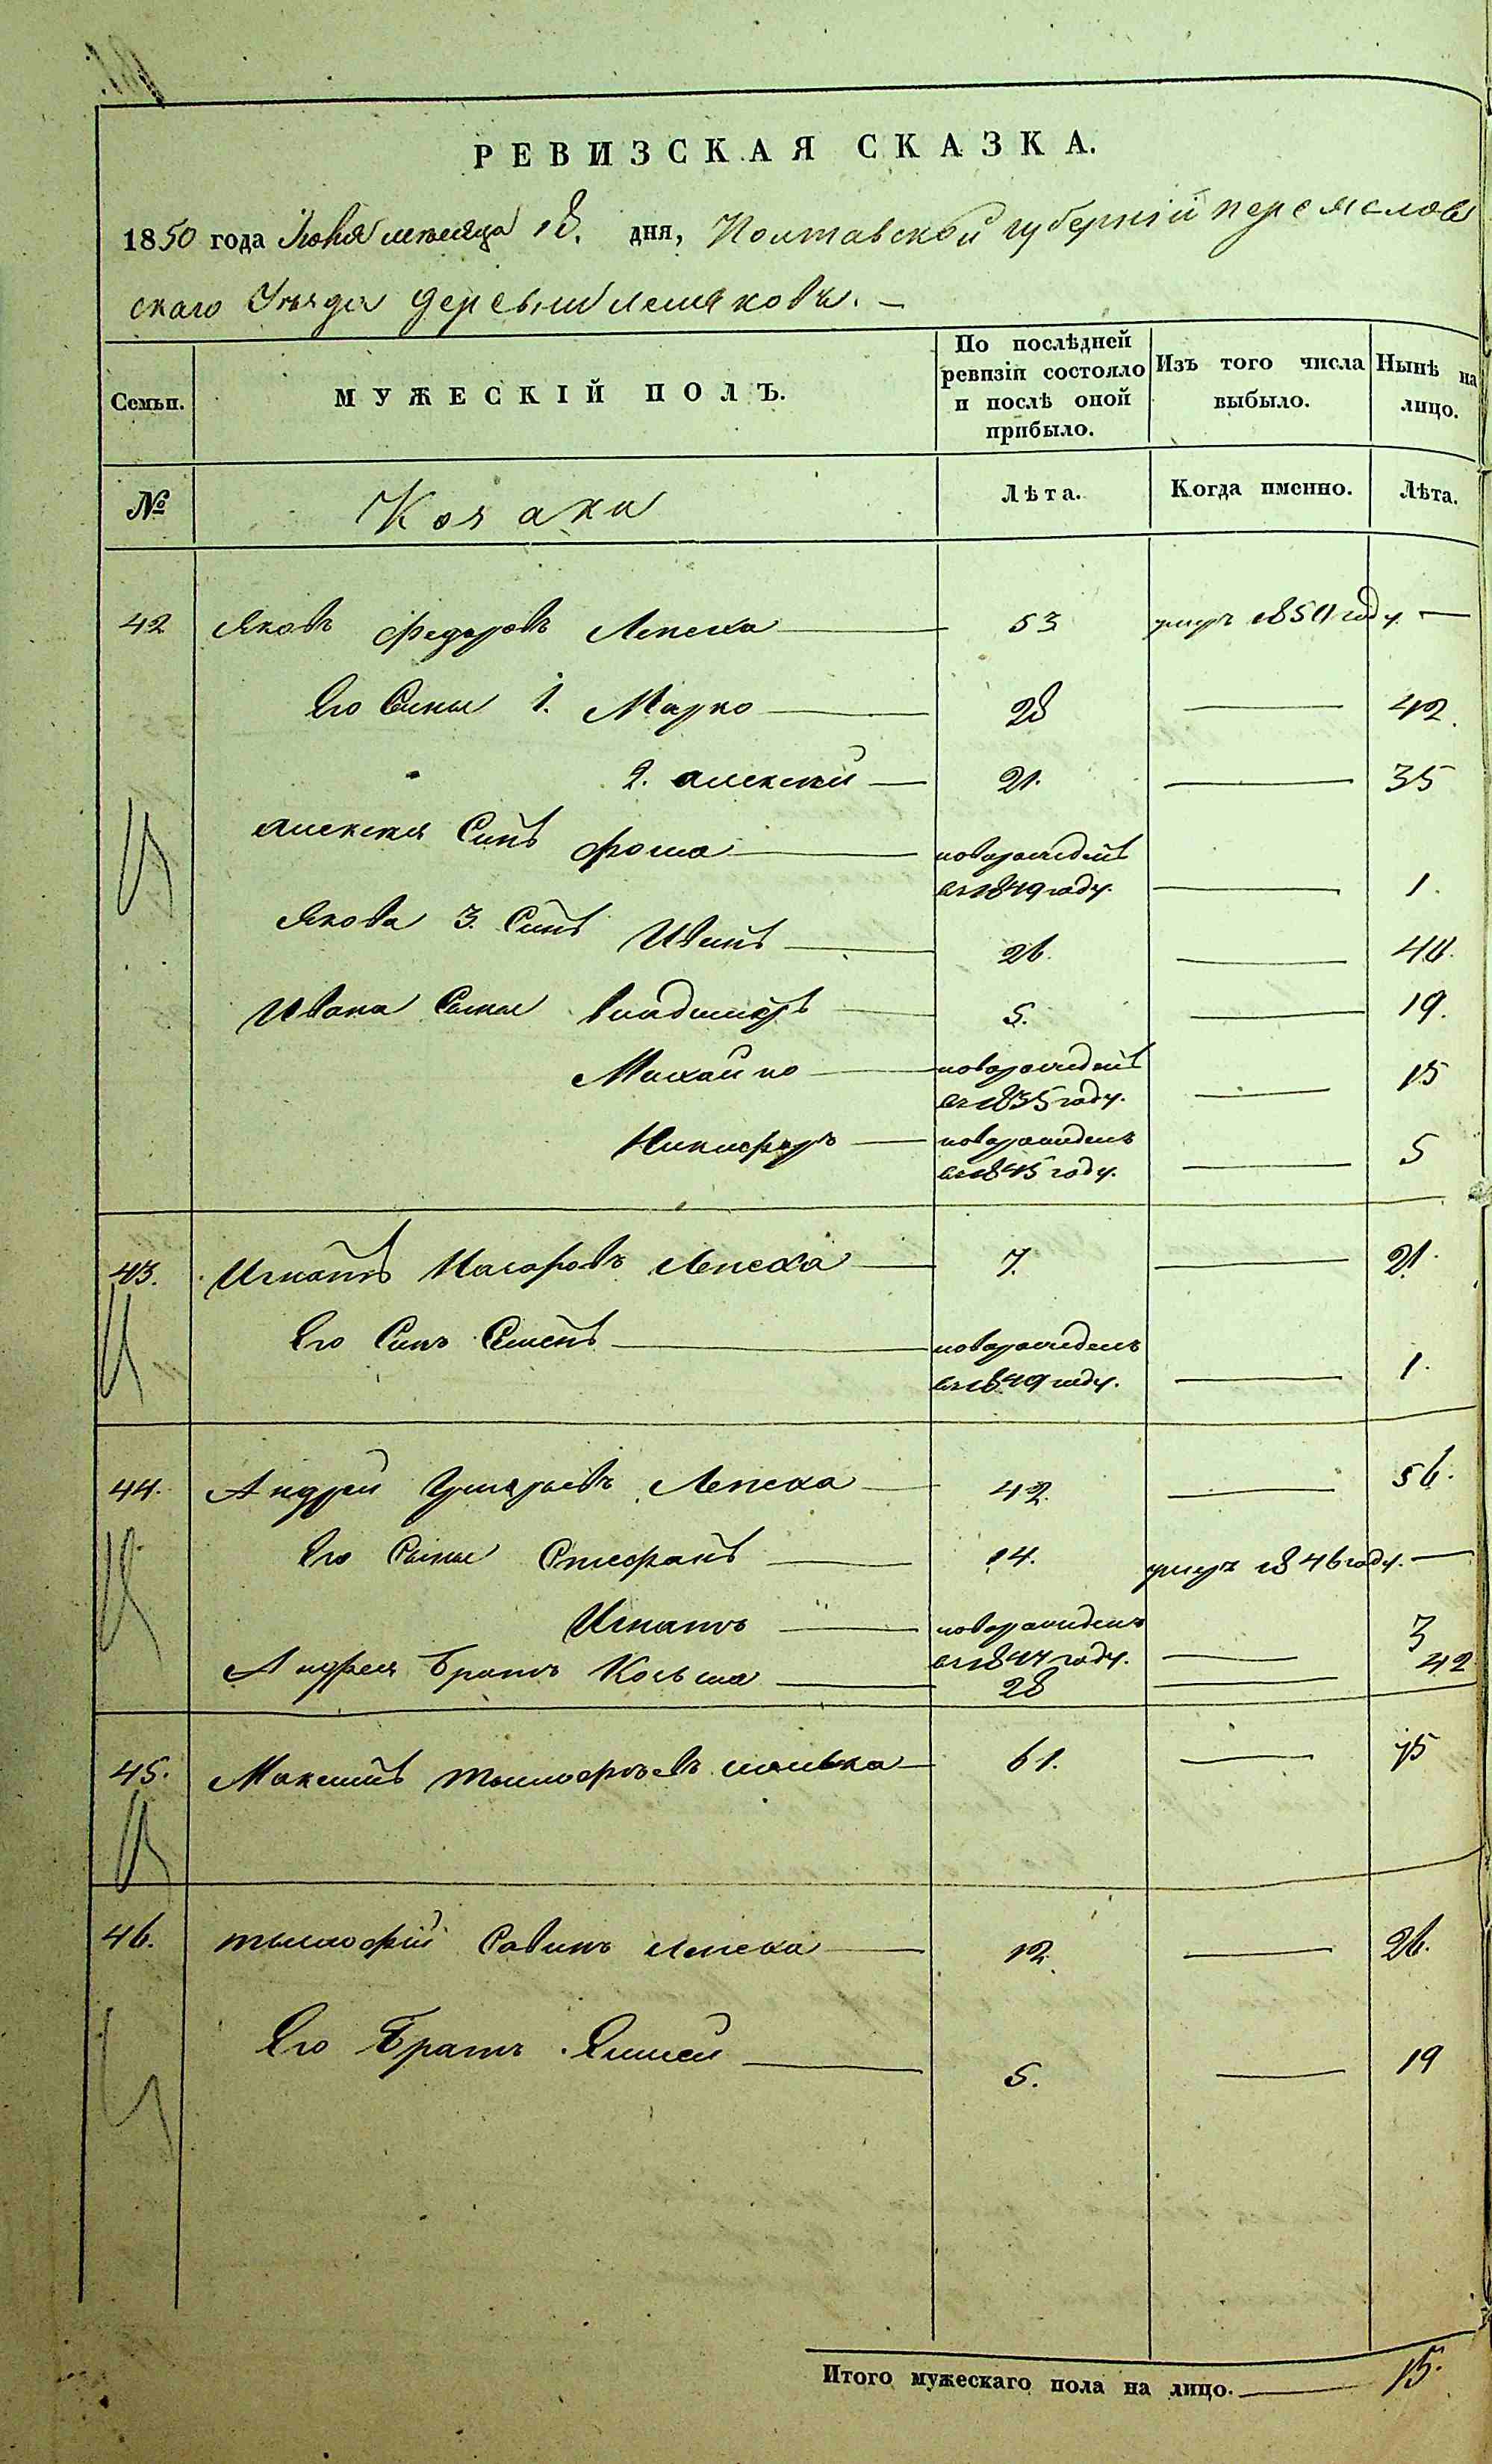 РЕВИЗСКАЯ СКАЗКА.
1850 года Июня месяца 18. дня, Полтавской губерній переяслов
скаго Уезда деревни лемяковъ. —
Семьи.
МУЖЕСКІЙ ПОЛЪ.
По послѣдней ревизіи состояло и послѣ оной прибыло.
Изъ того числа выбыло.
Нынѣ на лицо.
№ Козаки Лѣта. Когда именно. Лѣта.
42 Яковъ Федоровъ Лепеха — 53 умеръ 1850 году. —
Его Сыны 1. Марко — 28 — 42.
2. алексѣй — 21. — 35
алексея Синъ Фома — новорожденъ
въ 1849 году. — 1.
Якова 3. Синъ Иванъ — 26. — 40.
Ивана Сыны Владимиръ — 5. — 19.
Михайло — новорожденъ
въ 1835 году. — 15
Никифоръ — новорожденъ
въ 1845 году. — 5
43. Игнатъ Назаровъ Лепеха — 7. — 21.
Его Синъ Семенъ — новорожденъ
въ 1849 году. — 1.
44. Андрей Григорьевъ Лепеха — 42. — 56.
Его Сыны Стефанъ — 14. умеръ 1846 году. —
Игнатъ — новорожденъ
въ 1847 году. — 3
Андрея Братъ Козьма — 28 — 42
45. Максимъ тымофѣевъ — 61. — 75
46. тымофій Савинъ лепеха — 12. — 26.
Его Братъ Елисей — 5. — 19
Итого мужескаго пола на лицо. — 15.